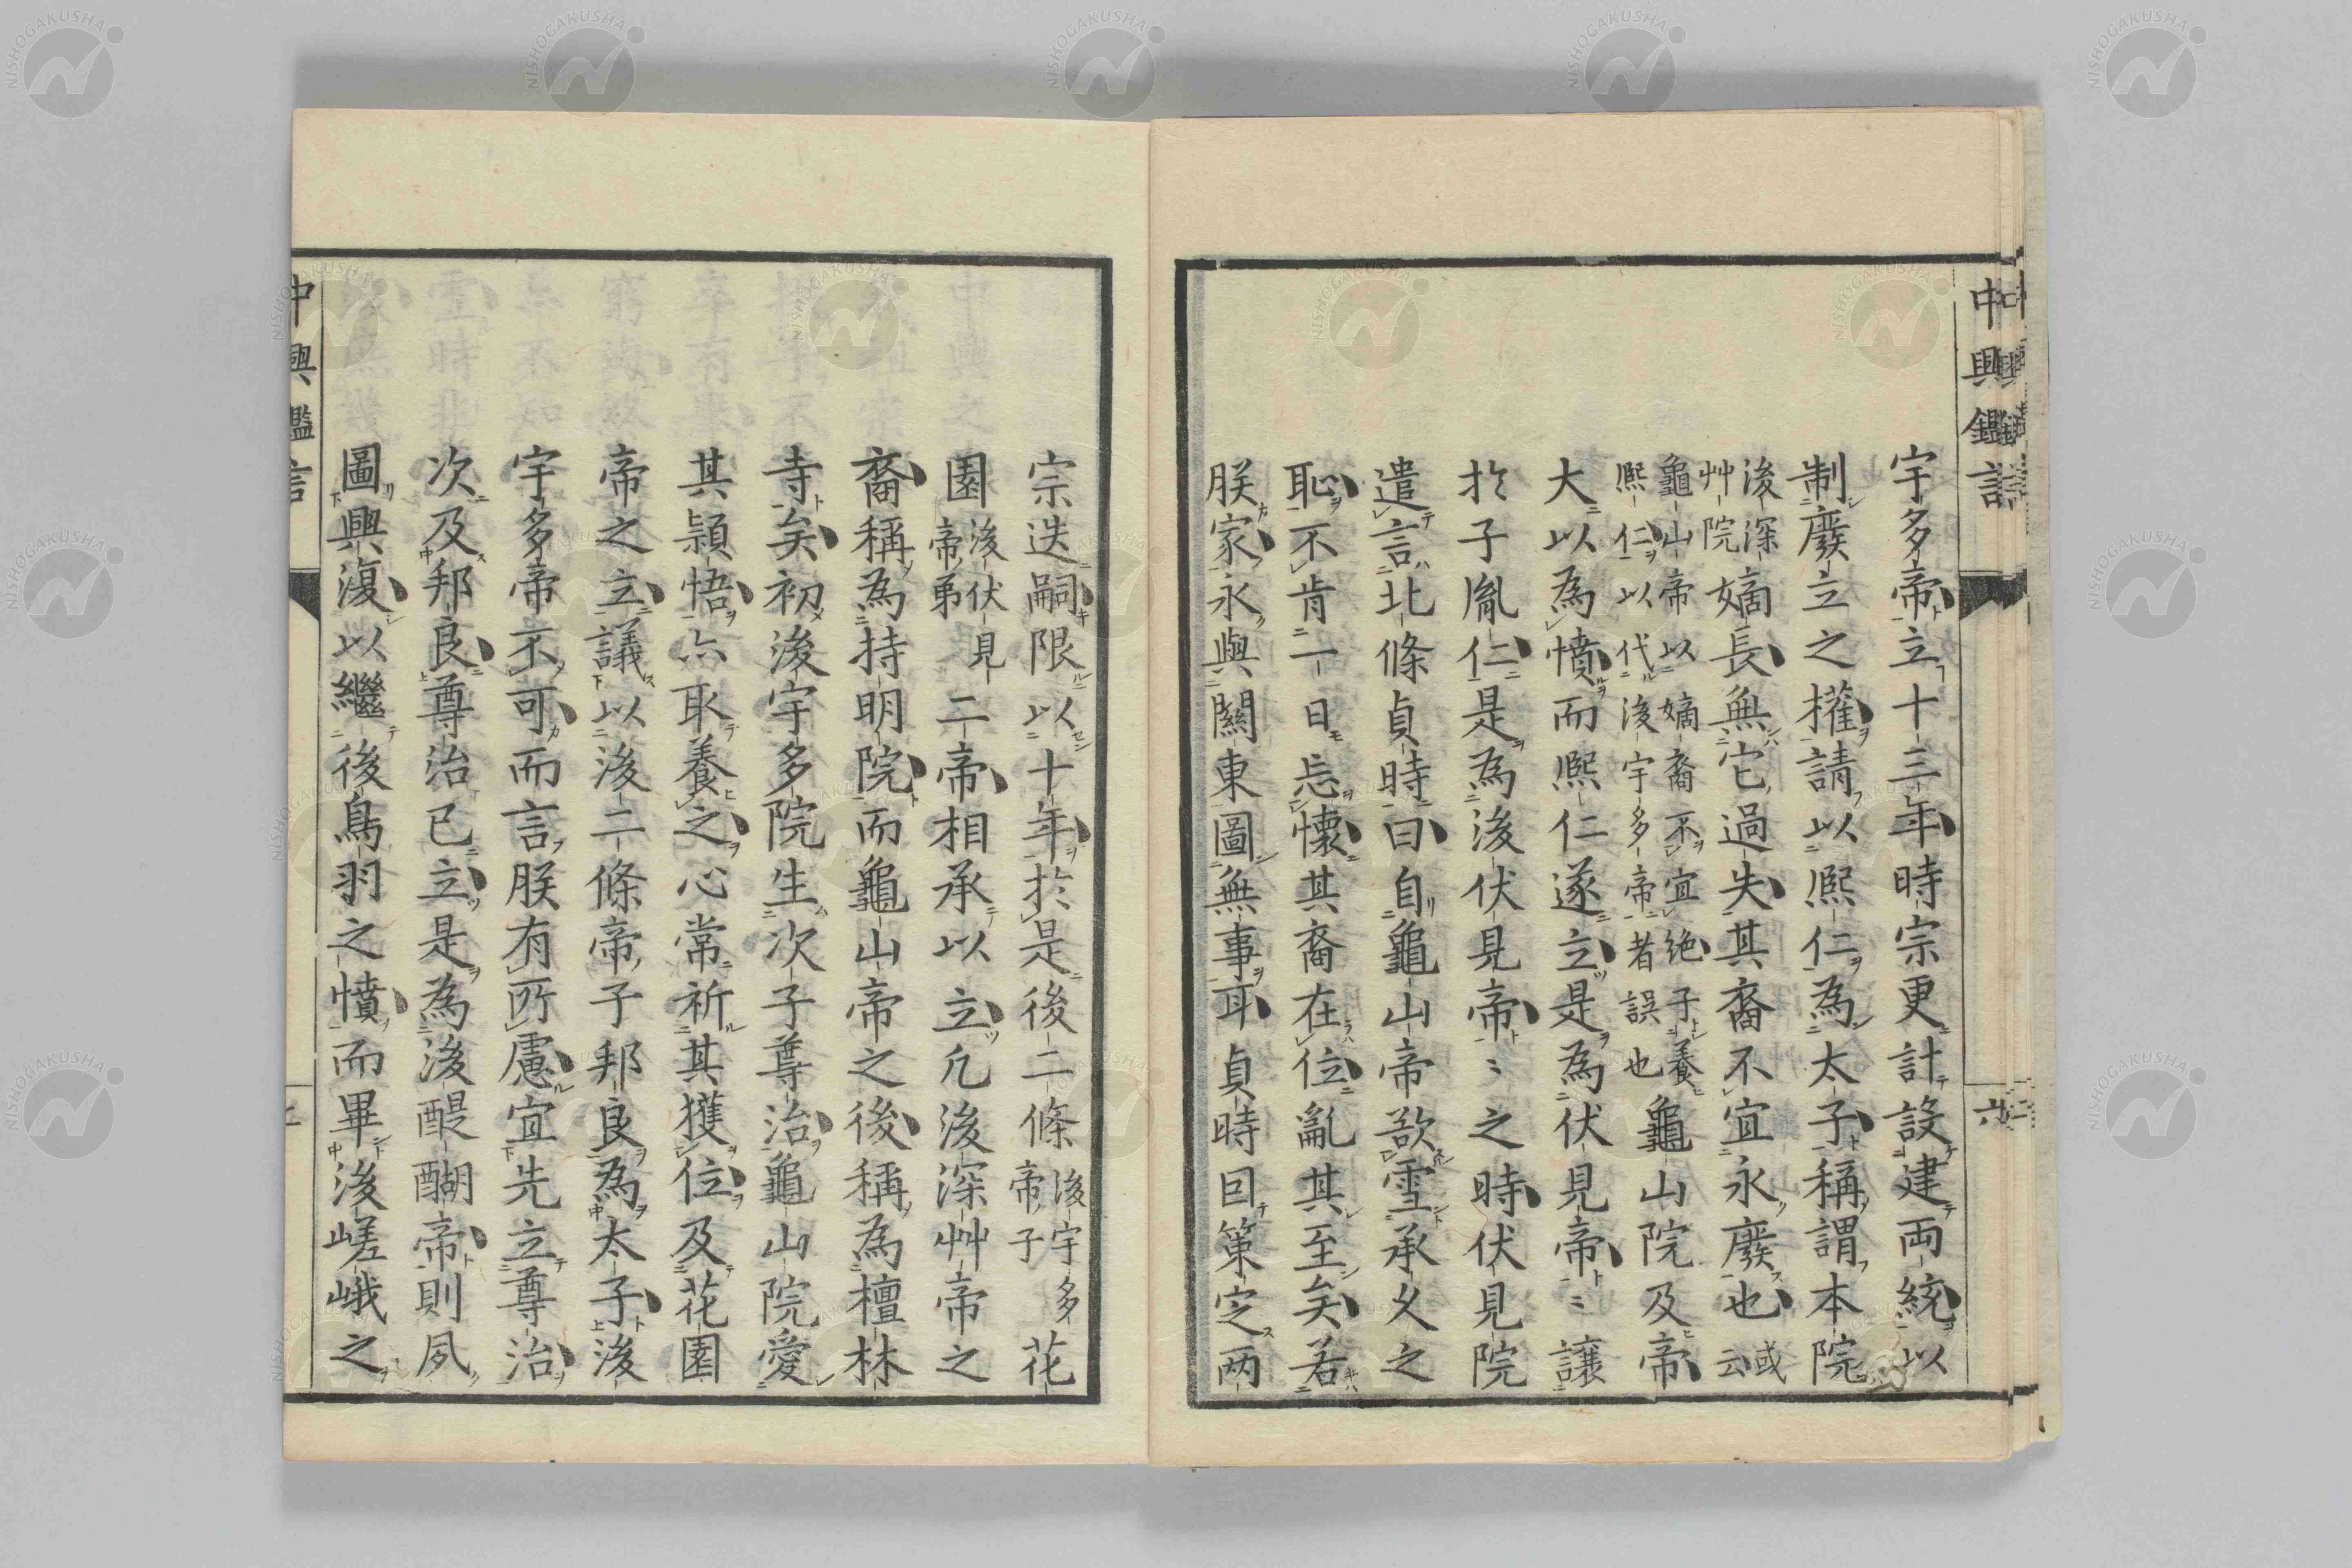 中興鑑言
六
宇多帝立十三年時宗更計設建両統以
制廢立之權請以熈仁為太子稱謂本院
後深艸院嫡長無它過失其裔不宜永廢也或云
龜山帝以嫡裔不宜絶子養熈仁以代後宇多帝者誤也龜山院及帝
大以為憤而熈仁遂立是為伏見帝〻譲
於子胤仁是為後伏見帝〻之時伏見院
遣言北條貞時曰自龜山帝欲雪承久之
恥不肯一日忘懷其裔在位亂其至矣若
朕家永與關東圖無事耳貞時因策定两
宗迭嗣限以十年於是後二條後宇多帝子花
園後伏見帝弟二帝相承以立凢後深艸帝之
裔稱為持明院而龜山帝之後稱為檀林
寺矣初後宇多院生次子尊治龜山院愛
其頴悟六取養之心常祈其獲位及花園
帝之立議以後二條帝子邦良為太子後
宇多帝不可而言朕有所慮宜先立尊治
次及邦良尊治已立是為後醍醐帝則夙
圖興復以繼後鳥羽之憤而畢後嵯峨之
中興鑑言
NISHOGAKUSHA